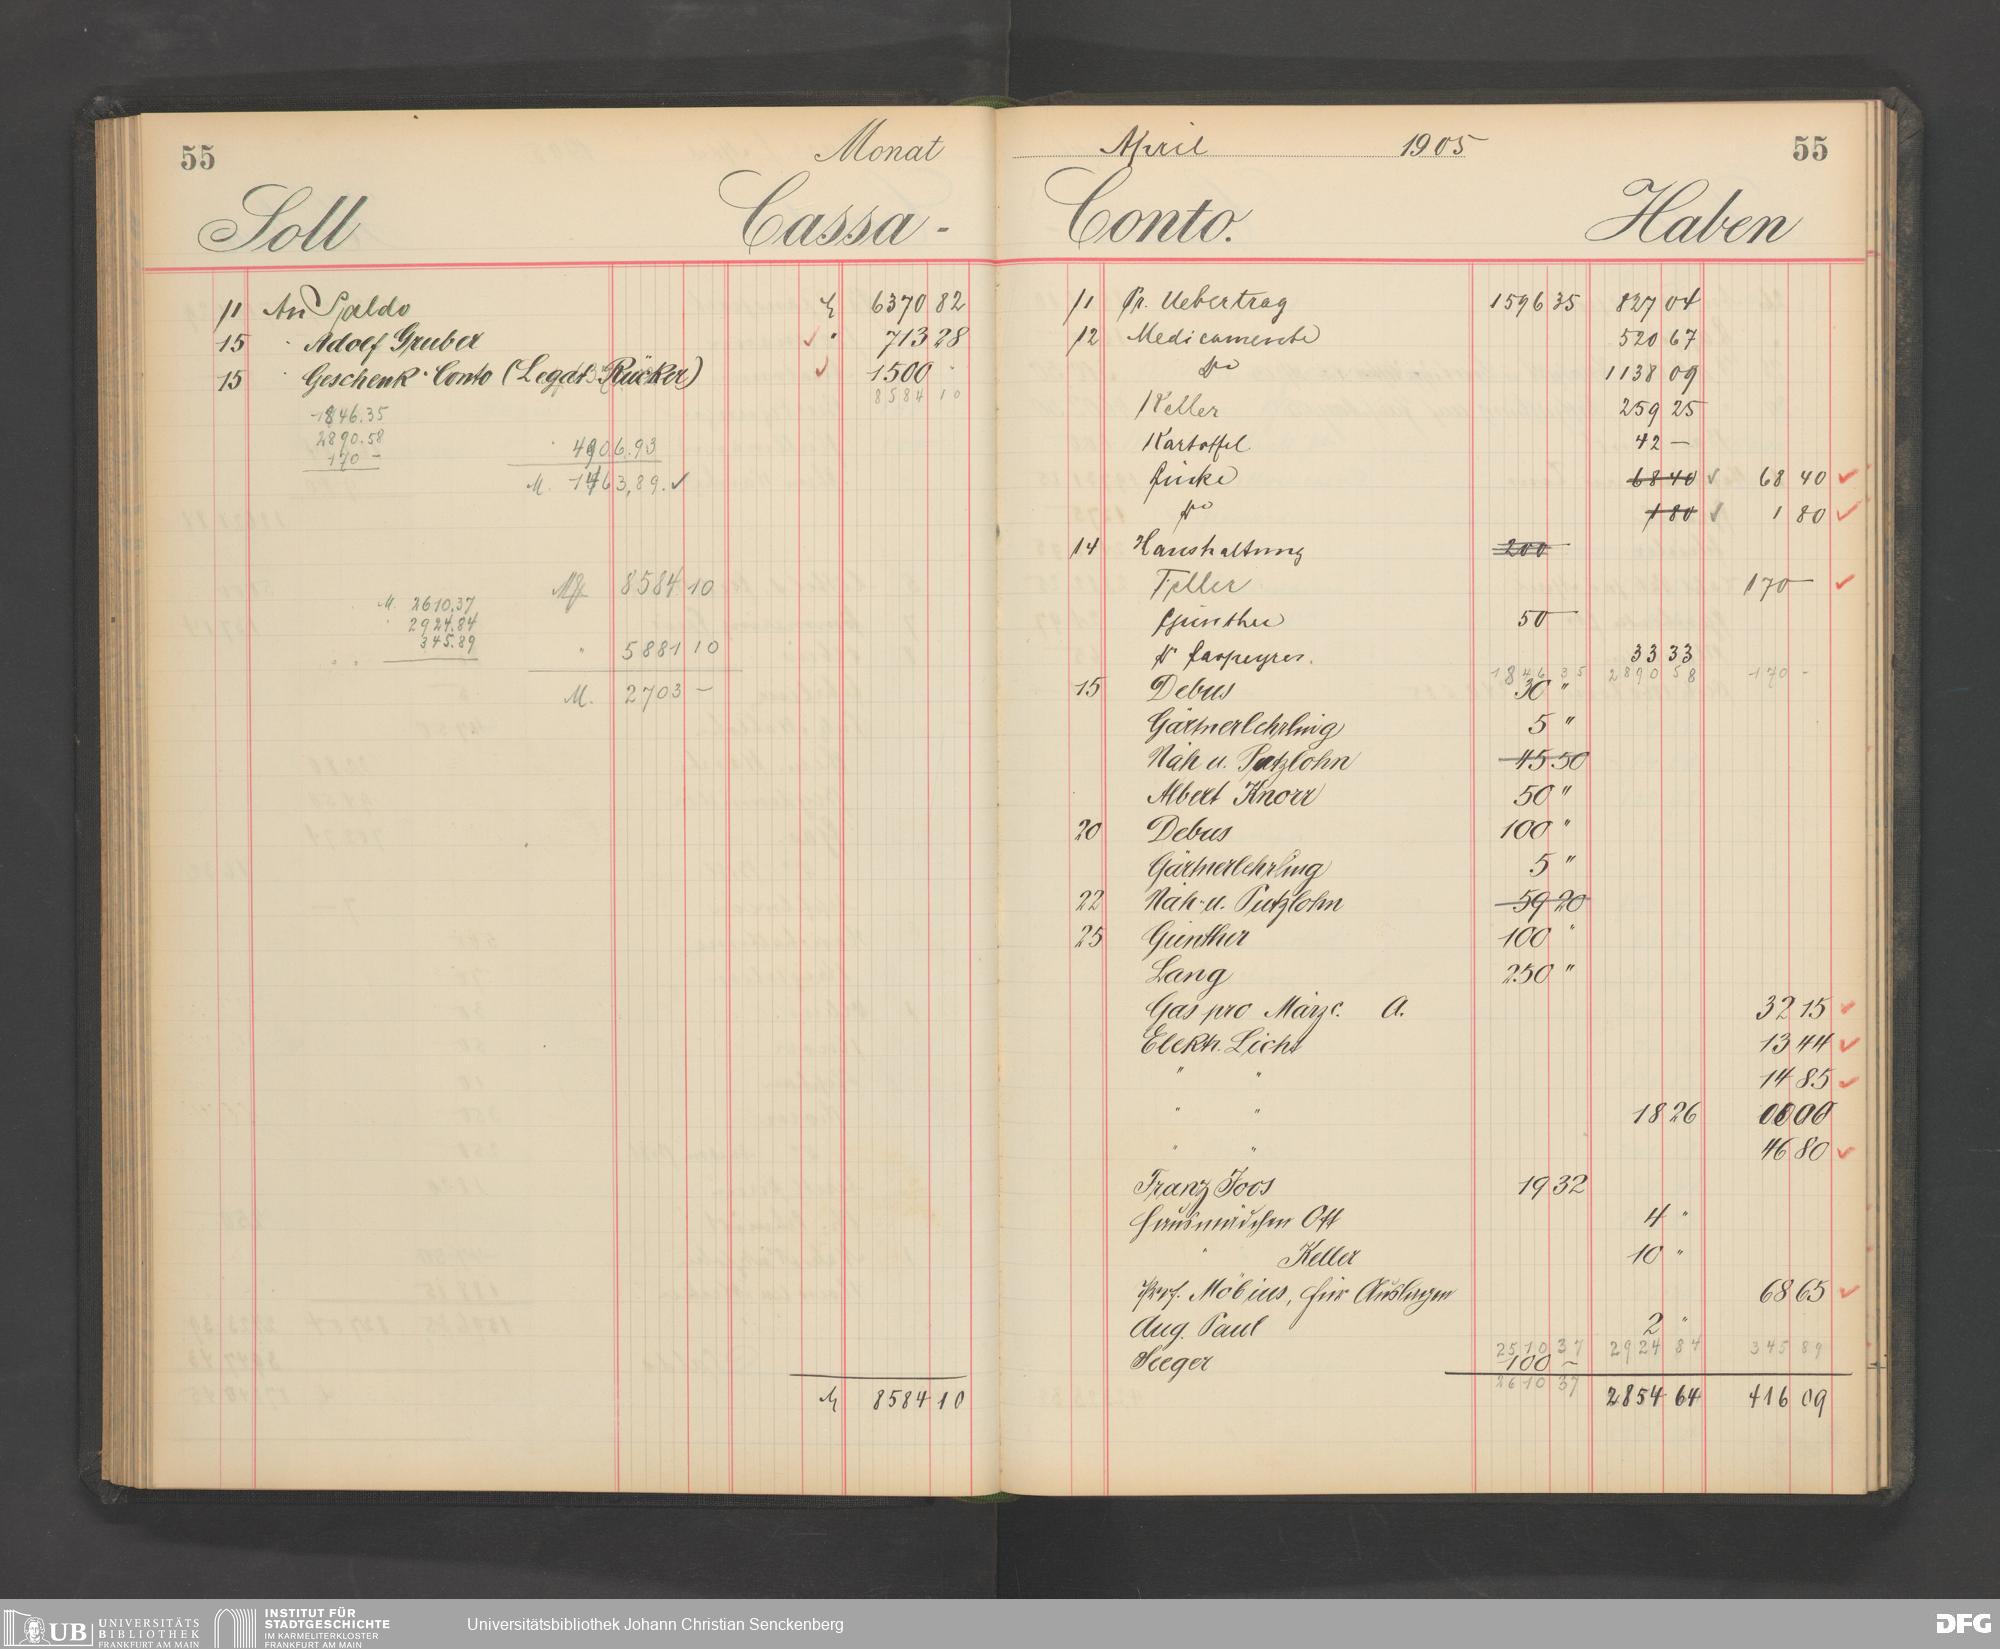 55
Monat
Soll Cassa-
11 An Saldo M 6370 82
15 " Adolf Gruber " 713 28
15 " Geschenk-Conto (Legat Rücker) 1500 "
8584 10
1846.35
2890.58
170 -
4906.93
M. 1463,89.
M 8584 10
M. 2610,37
" 2924.84
345.89
" 5881 10
M. 2703 —
M 8584 10
April 1905 55
Conto. Haben
11 Pr. Uebertrag 1596 35 827 04
12 Medicamente 520 67
do 1138 09
Keller 259 25
Kartoffel 42 —
Finke 68 40 68 40
do 1 80 1 80
14 Haushaltung 200 —
Feller 170 —
Günther 50 —
33 33
1846 35 2890 58 170 -
15 Debus 30 "
Gärtnerlehrling 5 "
Näh u. Putzlohn 45 50
Albert Knorr 50 "
20 Debus 100 "
Gärtnerlehrling 5 "
22 Näh- u. Putzlohn 59 20
25 Günther 100 "
Lang 250 "
Gas pro März c. A. 32 15
Elektr. Licht 13 44
" " 14 85
" " 18 26 00 00
" " 46 80
Franz Joos 19 32
Hausmädchen Ott 4 "
" Keller 10 "
Prof. Möbius, für Auslagen 68 65
Aug. Paul 2 "
2510 37 2924 84 345 89
Seeger 100 —
2610 37 2854 64 416 09
UB UNIVERSITÄTS
BIBLIOTHEK
FRANKFURT AM MAIN
INSTITUT FÜR
STADTGESCHICHTE
IM KARMELITERKLOSTER
FRANKFURT AM MAIN
Universitätsbibliothek Johann Christian Senckenberg
DFG